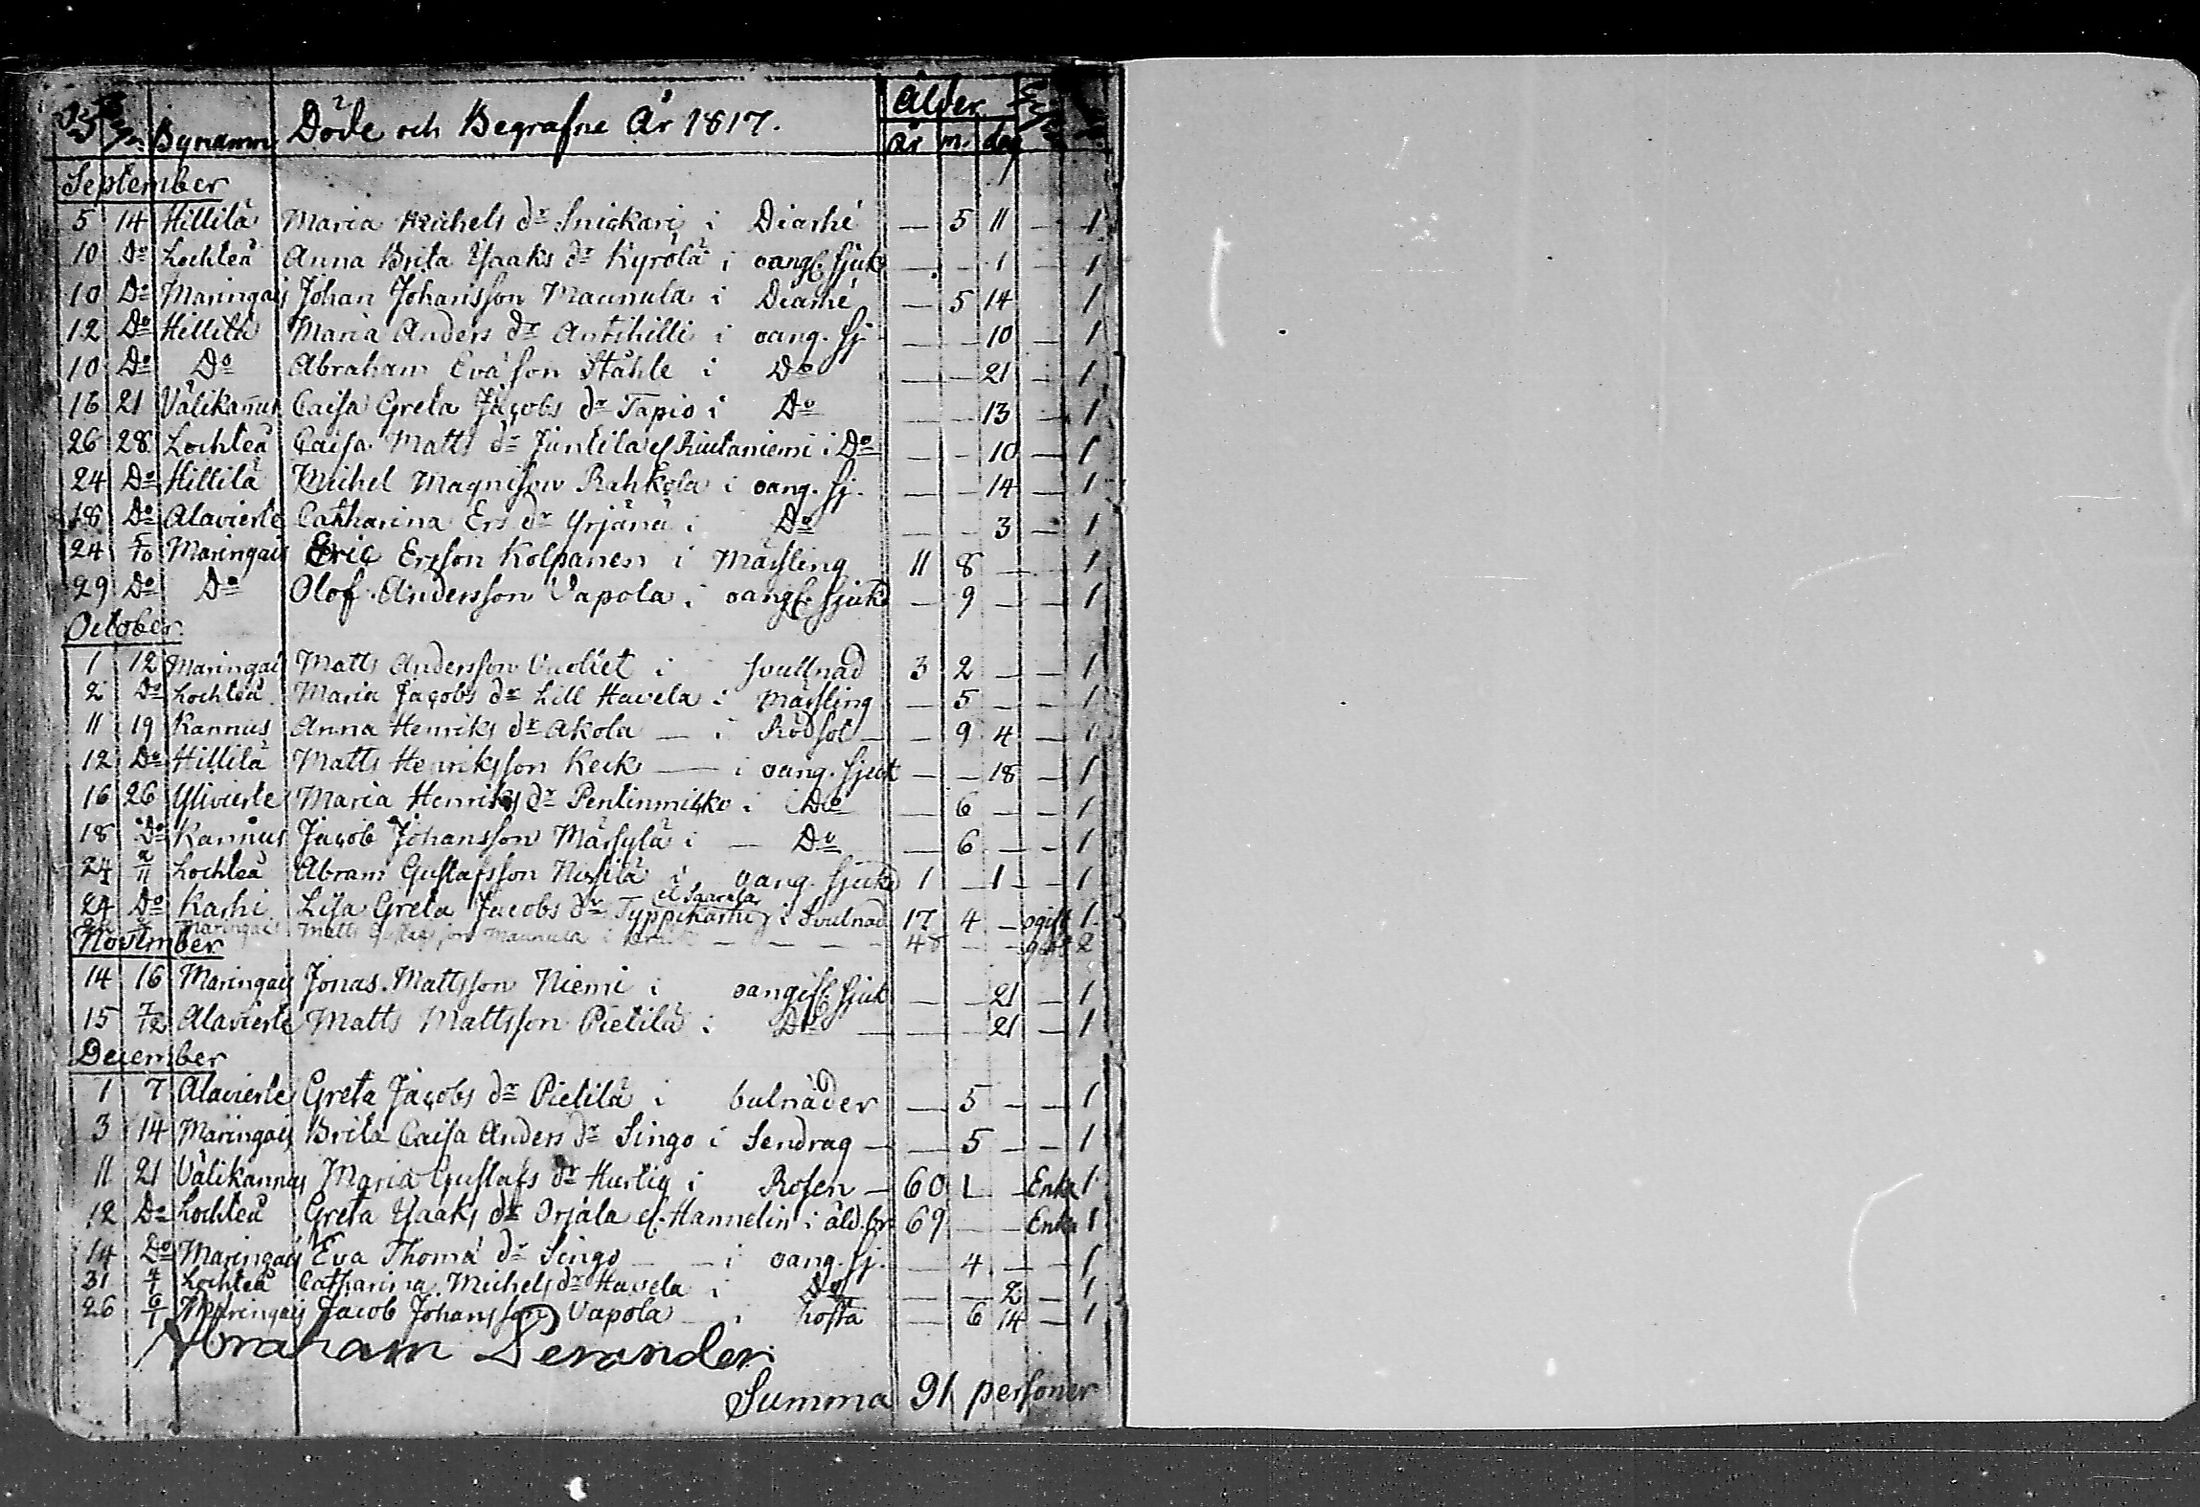 Döde och Begrafne År 1817. Ålder
Bynamn år m. dag
September 1
5 14 Hillilä Maria Michels dr Snickari i Diarhé — 5 11 — 1
10 Do Lochteå Anna Brita Isaaks dr Kyrölä i oangf. sjuk — - 1 — 1
10 Do Maringais Johan Johansson Maunula i Diarhé — 5 14 1
12 Do Hillilä Maria Anders dr Antihilli i oang. sj — — 10 — 1
10 Do Do Abraham Eva son Ståhle i Do — — 21 — 1
16 21 Välikañus Caisa Greta Jacobs dr Tapio i Do — — 13 — 1
26 28 Lochteå Caisa Matts dr Juntila el. i Do — - 10 — 1
24 Do Hillilä Michel Magnison Rahkola i oang. sj. — — 14 — 1
18 Do Alavierte Catharina Ers dr Yrjänä i Do — - 3 — 1
24 5/10 Maringais Eric Ersson Kolpanen i Mässling 11 8 — — 1
29 Do Do Olof Andersson Vapola i oangf. sjukd — 9 — — 1
October
1 12 Maringais Matts Andersson i svullnad 3 2 — — 1
2 Do Lochteå Maria Jacobs dr Lill Havela i Mässling — 5 — — 1
11 19 Kannus Anna Henriks dr Akola — i Rödsot — — 9 4 — 1
12 Do Hillilä Matts Henriksson Keck — i oang. sjuk — — 18 — 1
16 26 Ylivierte Maria Henriks dr Pentinmikko i Do — 6 — — 1
18 Do Kannus Jacob Johansson Märsylä i — Do — 6 — — 1
24 2/11 Lochteå Abram Gustafsson Nissilä i oang. sjukd 1 — 1 — 1
el Saarela
24 Do Karhi Lisa Greta Jacobs dr Typpikarhi i Svulnad 17 4 — ogift 1
Maringais Matts Maunula i — — — — 48 — — gift 2
November
14 16 Maringais Jonas Mattsson Niemi i oangifl. sjuk — — 21 — 1
15 7/12 Alavierte Matts Mattsson Pietilä i Do — — — 21 — 1
December
1 7 Alavierte Greta Jacobs dr Pietilä i bulnåder — 5 — — 1
3 14 Maringais Brita Caisa Anders dr Singo i Sendrag — — 5 — — 1
11 21 Välikannus Maria Gustafs dr Hurtig i Rosen — 60 1 — Enka 1
12 Do Lochteå Greta Isaaks dr Orjala el. Hannelin i åld.br 69 — — Enka 1
14 Do Maringais Eva Thoma dr Singo — — i oang. sj. — 4 — — 1
31 4/1 Lochteå Catharina Michels dr Havela i Do — — 2 — 1
26 6/1 Maringais Jacob Johansson Vapola — i hosta — 6 14 — 1
Abraham
Summa 91 personer